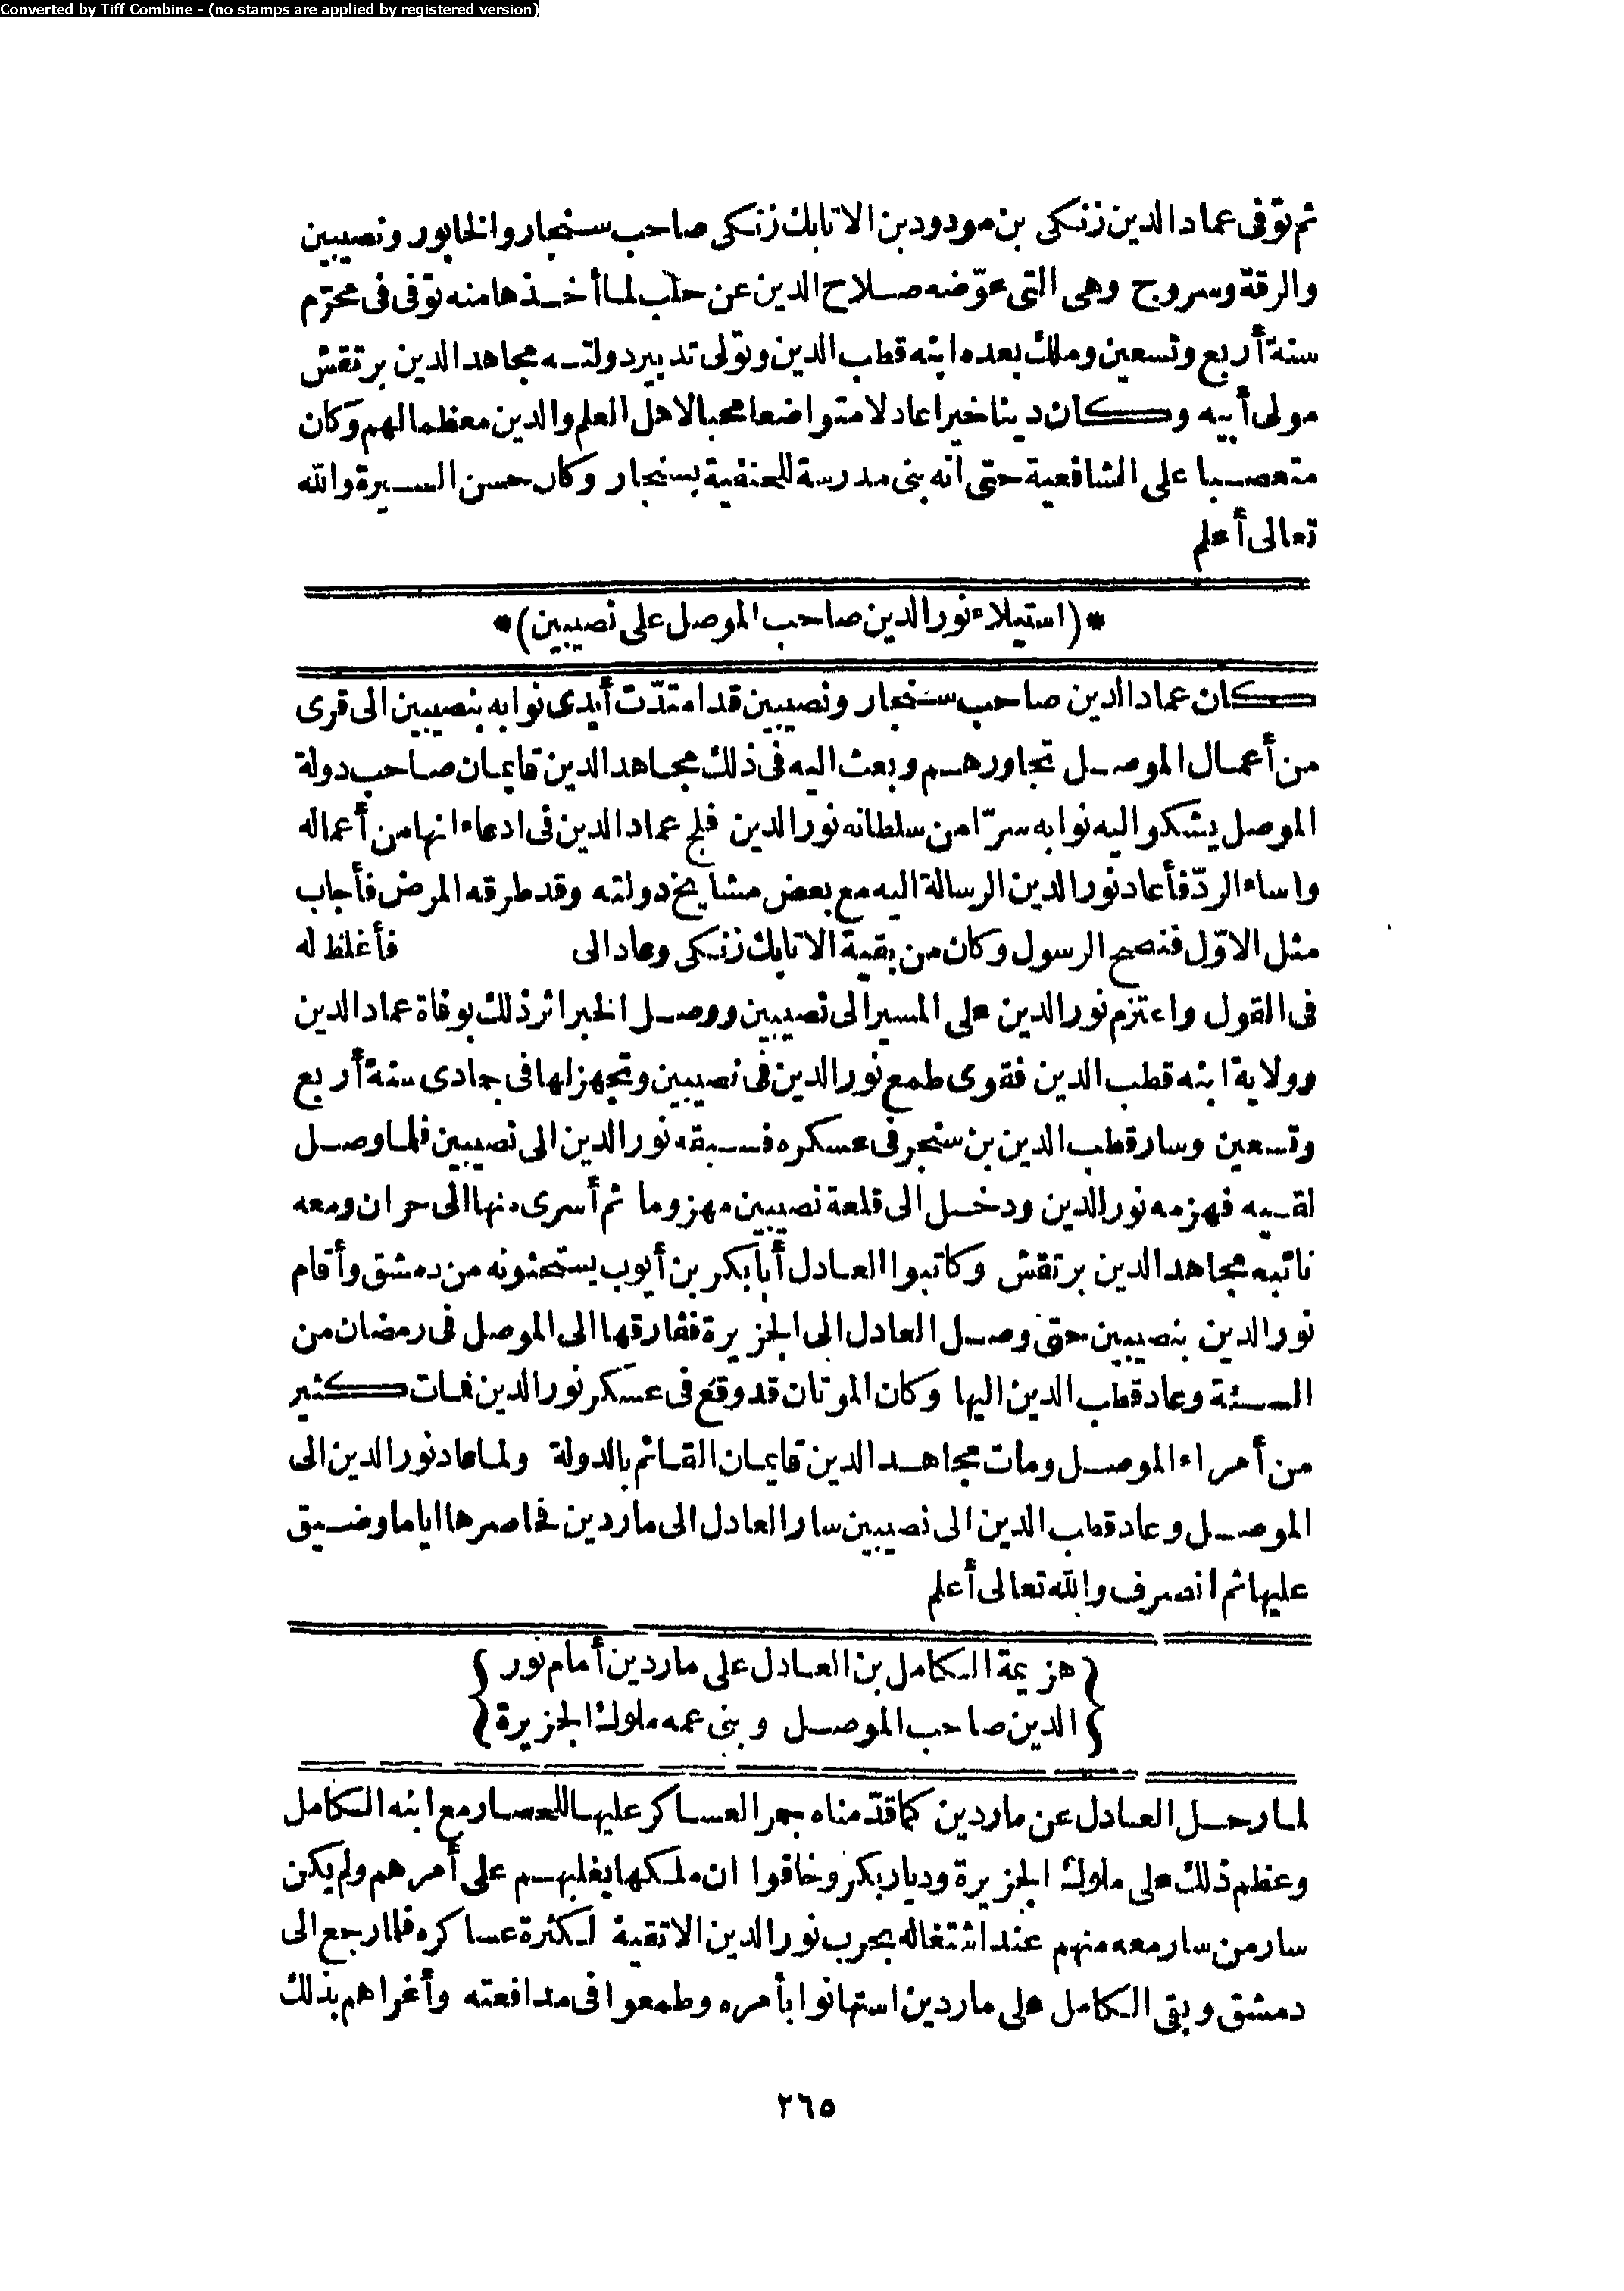 Converted by Tiff Combine - (no stamps are applied by registered version)
ثم توّفى عماد الدين زنكى بن مودود بن الاتابك زنكى صاحب سنجار والخابور ونصيبين
والرقة وسروج وهى التى عوّضه صلاح الدين عن حلب لما أخذها منه توّفى فى محرّم
سنة أربع وتسعين وملك بعده ابنه قطب الدين وتولى تدبير دولته مجاهد الدين برتقش
مولى أبيه وكان دينا خيرا عادلا متواضعا محبا لاهل العلم والدين معظما لهم وكان
متعصبا على الشافعية حتى انه بنى مدرسة للحنفية بسنجار وكان حسن السيرة والله
تعالى أعلم
*(استيلاء نور الدين صاحب الموصل على نصيبين)*
كان عماد الدين صاحب سنجار ونصيبين قد امتدّت أيدى نوابه بنصيبين الى قرى
من أعمال الموصل تجاورهم وبعث اليه فى ذلك مجاهد الدين قايمان صاحب دولة
الموصل يشكو اليه نوابه سرّا من سلطانه نور الدين فلج عماد الدين فى ادعاء انها من أعماله
واساء الردّ فأعاد نور الدين الرسالة اليه مع بعض مشايخ دولته وقد طرقه المرض فأجاب
مثل الاوّل فنصح الرسول وكان من بقية الاتابك زنكى وعاد الى فأغلظ له
فى القول واعتزم نور الدين على المسير الى نصيبين ووصل الخبر اثر ذلك بوفاة عماد الدين
وولاية ابنه قطب الدين فقوى طمع نور الدين فى نصيبين وتجهز لها فى جمادى سنة أربع
وتسعين وسار قطب الدين بن سنجر فى عسكره فسبقه نور الدين الى نصيبين فلما وصل
لقيه فهزمه نور الدين ودخل الى قلعة نصيبين مهزوما ثم أسرى منها الى حران ومعه
نائبه مجاهد الدين برتقش وكاتبوا العادل أبا بكر بن أيوب يستحثونه من دمشق وأقام
نور الدين بنصيبين حتى وصل العادل الى الجزيرة ففارقها الى الموصل فى رمضان من
السنة وعاد قطب الدين اليها وكان الموتان قد وقع فى عسكر نور الدين فمات كثير
من أمراء الموصل ومات مجاهد الدين قايمان القائم بالدولة ولما عاد نور الدين الى
الموصل وعاد قطب الدين الى نصيبين سار العادل الى ماردين فحاصرها اياما وضيق
عليها ثم انصرف والله تعالى أعلم
{هزيمة الكامل بن العادل على ماردين أمام نور}
{الدين صاحب الموصل وبنى عمه ملوك الجزيرة}
لما رحل العادل عن ماردين كما قدّمناه جمر العساكر عليها للحصار مع ابنه الكامل
وعظم ذلك على ملوك الجزيرة وديار بكر وخافوا ان ملكها يغلبهم على أمرهم ولم يكن
سار من سار معه منهم عند اشتغاله بحرب نور الدين الا تقية لكثرة عساكره فلما رجع الى
دمشق وبقى الكامل على ماردين استهانوا بأمره وطمعوا فى مدافعته وأغراهم بذلك
٢٦٥